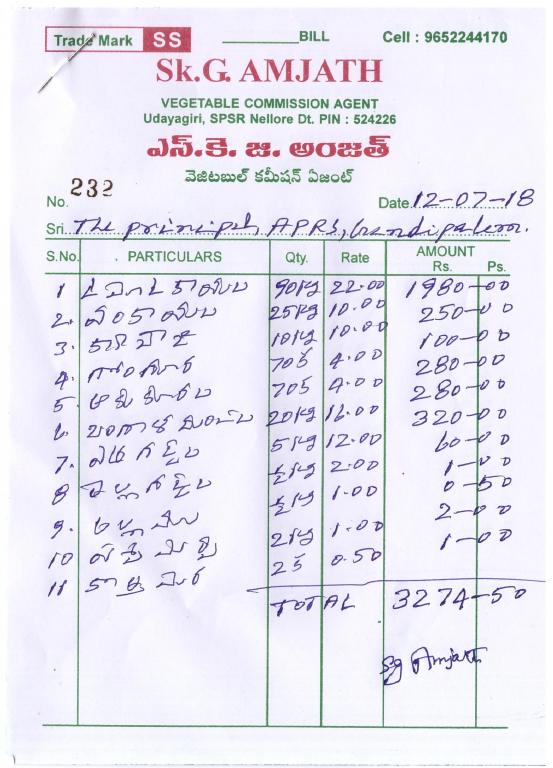 Trade Mark SS ________BILL Cell : 9652244170
Sk.G. AMJATH
VEGETABLE COMMISSION AGENT
Udayagiri, SPSR Nellore Dt. PIN : 524226
ఎస్.కె. జి. అంజత్
వెజిటబుల్ కమీషన్ ఏజంట్
No. 232 Date 12-07-18
Sri. The principal, APRS, Gandipalem.
S.No. PARTICULARS Qty. Rate AMOUNT
Rs. Ps.
1 90kg 22.00 1980-00
2. వంకాయలు 25kg 10.00 250-00
3. 10kg 10.00 100-00
4. గోంగూర 705 4.00 280-00
5. ఆకుకూరలు 705 4.00 280-00
6. 20kg 16.00 320-00
7. 5kg 12.00 60-00
8 2.00 1-00
9. 1.00 0-50
10 2kg 1.00 2-00
11 25 0.50 1-00
TOTAL 3274-50
Sg Amjath